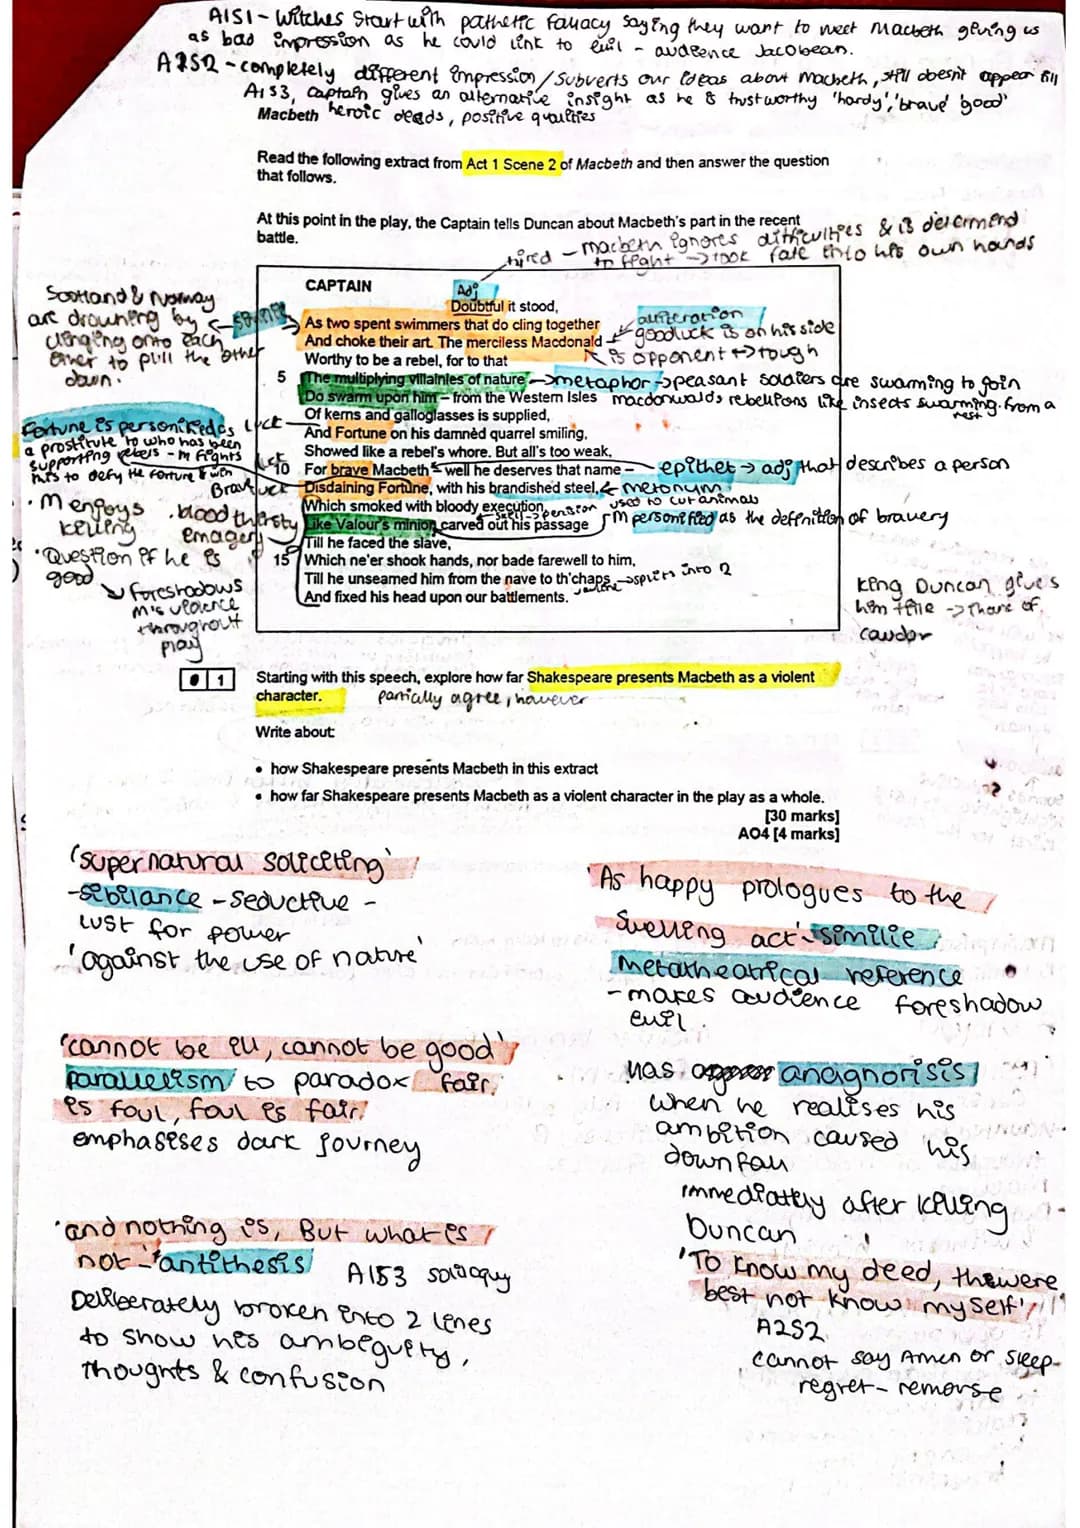 A1S1 - Witches Start with pathetic fallacy saying they want to meet Macbeth giving us
as bad impression as he could link to evil - audience Jacobean.
A1S2 - completely different impression / subverts our ideas about macbeth, still doesn't appear till
A1S3, captain gives an alternative insight as he is trustworthy 'hardy', 'brave' 'good'
Macbeth heroic deads, positive qualities
Read the following extract from Act 1 Scene 2 of Macbeth and then answer the question
that follows.
At this point in the play, the Captain tells Duncan about Macbeth's part in the recent
battle.
tired - macbeth ignores difficulties & is determend
to fight -> took fate into his own hands
CAPTAIN
Adj
Doubtful it stood,
As two spent swimmers that do cling together
And choke their art. The merciless Macdonald
Worthy to be a rebel, for to that
5 The multiplying villainies of nature
Do swarm upon him – from the Western Isles
Of kerns and galloglasses is supplied,
And Fortune on his damnèd quarrel smiling,
Showed like a rebel's whore. But all's too weak,
10 For brave Macbeth – well he deserves that name –
Disdaining Fortune, with his brandished steel,
Which smoked with bloody execution,
Like Valour's minion carved out his passage
Till he faced the slave,
15 Which ne'er shook hands, nor bade farewell to him,
Till he unseamed him from the nave to th'chaps,
And fixed his head upon our battlements.
Scotland & Norway
are drowning by
clinging onto each
other to pull the other
down.
simile
alliteration
goodluck is on his side
is opponent <-> tough
-> metaphor -> peasant soldiers are swarming to join
macdonwalds rebellions like insects swarming from a
nest
Fortune is personified as
a prostitute to who has been
supporting rebels - M fights
his to defy the fortune & win
luck
luck
Brave
luck
epithet -> adj that describes a person
metonym
used to cut animals
M personified as the definition of bravery
· M enjoys
killing
· blood thirsty
emagery
· Question if he is
good
foreshadows
M's violence
througrout
play
splits into 2
King Duncan gives
him title -> Thane of
cawdor
0 1 Starting with this speech, explore how far Shakespeare presents Macbeth as a violent
character.
partically agree, however
Write about:
• how Shakespeare presents Macbeth in this extract
• how far Shakespeare presents Macbeth as a violent character in the play as a whole.
[30 marks]
AO4 [4 marks]
'supernatural soliciting'
- sibilance - seductive -
lust for power
'against the use of nature'
'cannot be ill, cannot be good'
parallelism to paradox fair
is foul, foul is fair.
emphasises dark journey
'and nothing is, But what is
not - 'antithesis
A1S3 soliloquy
Deliberately broken into 2 lines
to show his ambiguity,
thoughts & confusion
'As happy prologues to the
swelling act' - similie
metatheatrical reference
- makes audience foreshadow
evil.
has anagnorisis
when he realises his
ambition caused his
downfall
immediatly after killing
Duncan
'To know my deed, thewere
best not know myself'
A2S2
cannot say Amen or sleep-
regret - remorse